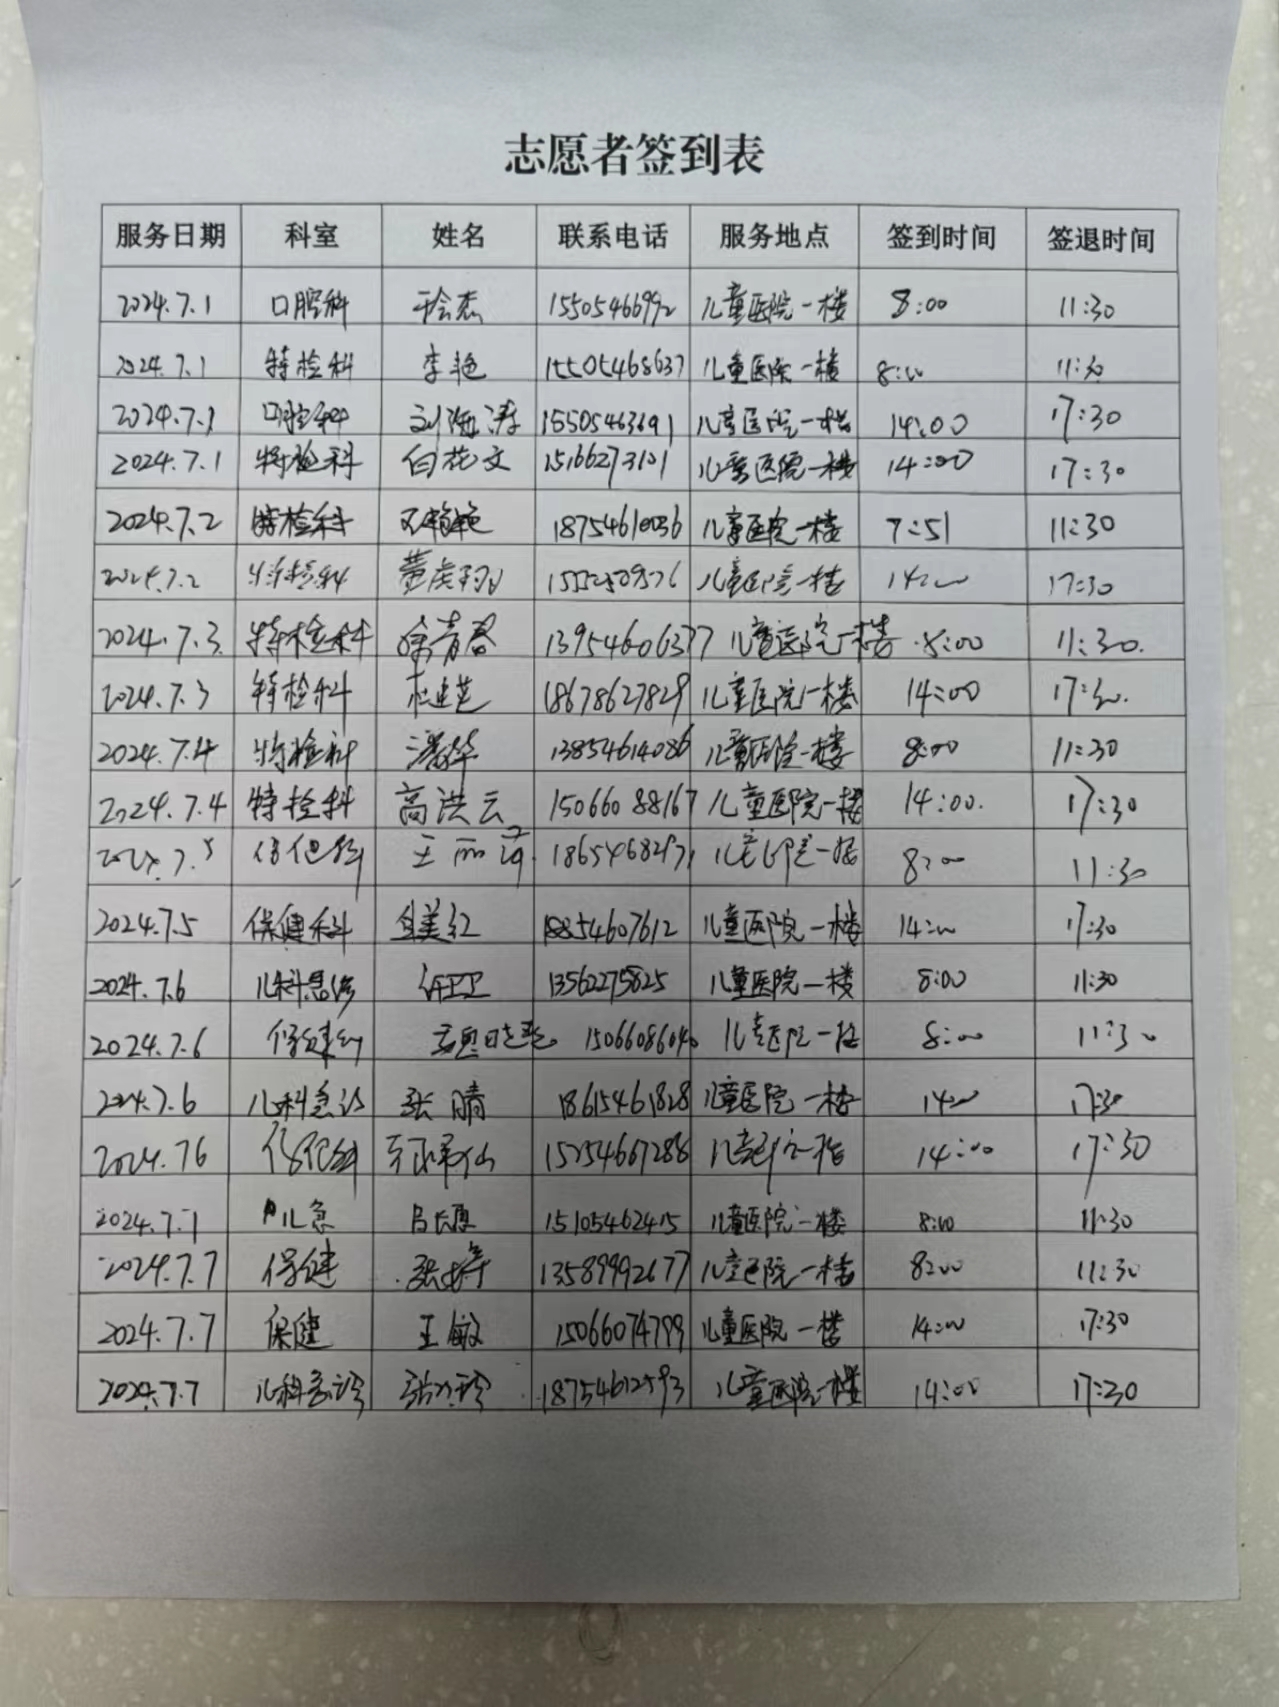 志愿者签到表
服务日期 科室 姓名 联系电话 服务地点 签到时间 签退时间
2024.7.1 口腔科 15505466992 儿童医院一楼 8:00 11:30
2024.7.1 特检科 李艳 15505468637 儿童医院一楼 8:00 11:30
2024.7.1 口腔科 刘海涛 15505463691 儿童医院一楼 14:00 17:30
2024.7.1 特检科 白花文 15166273101 儿童医院一楼 14:00 17:30
2024.7.2 特检科 18754610036 儿童医院一楼 7:51 11:30
2024.7.2 特检科 儿童医院一楼 14:00 17:30
2024.7.3 特检科 徐青春 13954606377 儿童医院一楼 8:00 11:30.
2024.7.3 特检科 杜建芝 18678627829 儿童医院一楼 14:00 17:30.
2024.7.4 特检科 13854614086 儿童医院一楼 8:00 11:30
2024.7.4 特检科 高洪云 15066088167 儿童医院一楼 14:00. 17:30
2024.7.5 保健科 儿童医院一楼 8:00 11:30
2024.7.5 保健科 18854607612 儿童医院一楼 14:00 17:30
2024.7.6 儿科急诊 任卫卫 13562275825 儿童医院一楼 8:00 11:30
2024.7.6 保健科 儿童医院一楼 8:00 11:30
2024.7.6 儿科急诊 张晴 18615461828 儿童医院一楼 14:00 17:30
2024.7.6 保健科 15254667288 儿童医院一楼 14:00 17:30
2024.7.7 儿急 15105462415 儿童医院一楼 8:00 11:30
2024.7.7 保健 张婷 13589992677 儿童医院一楼 8:00 11:30
2024.7.7 保健 王敏 15066074799 儿童医院一楼 14:00 17:30
2024.7.7 儿科急诊 18754612593 儿童医院一楼 14:00 17:30